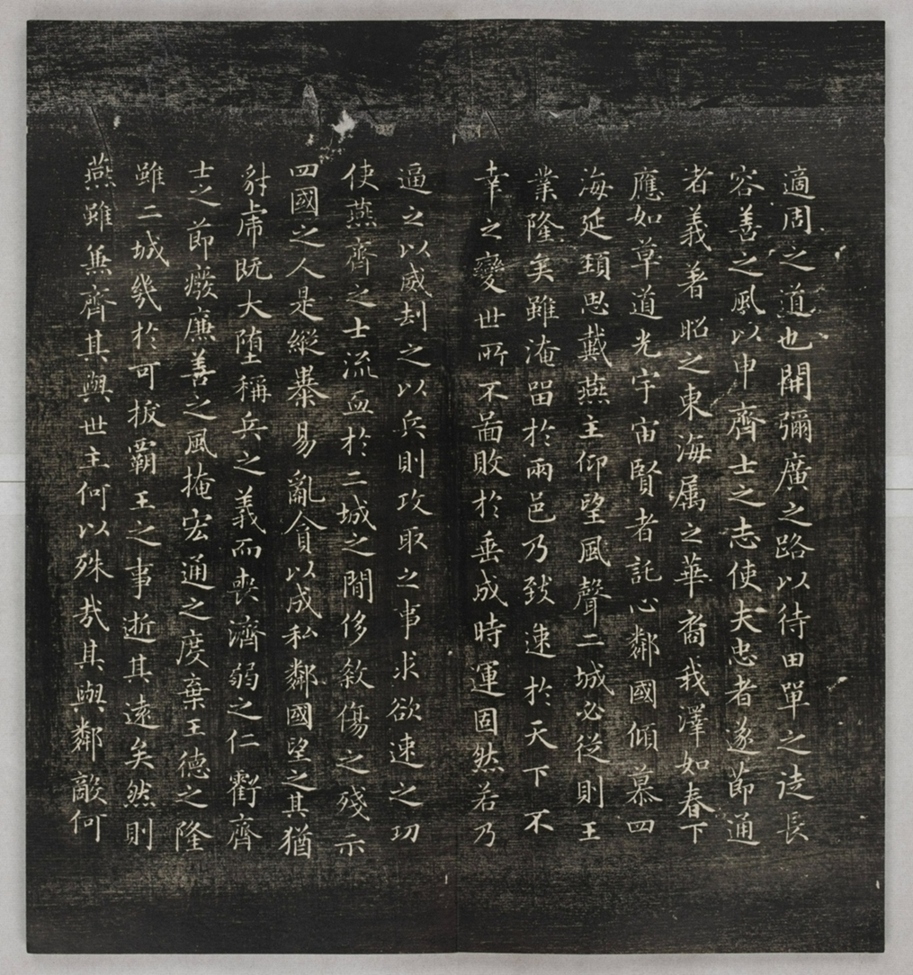 適周之道也開彌廣之路以待田單之徒長
容善之風以申齊士之志使夫忠者遂節通
者義著昭之東海属之華裔我澤如春下
應如草道光宇宙賢者託心鄰國傾慕四
海延頚思戴燕主仰望風聲二城必從則王
業隆矣雖淹留於兩邑乃致速於天下不
幸之變世所不啚敗於垂成時運固然若乃
逼之以威刦之以兵則攻取之事求欲速之功
使燕齊之士流血於二城之閒侈敘傷之殘示
四國之人是縱暴易亂貪以成私鄰國望之其猶
豺虎既大墮稱兵之義而喪濟弱之仁虧齊
士之節癈廉善之風掩宏通之度棄王德之隆
雖二城幾於可拔霸王之事逝其遠矣然則
燕雖無齊其與世主何以殊哉其與鄰敵何